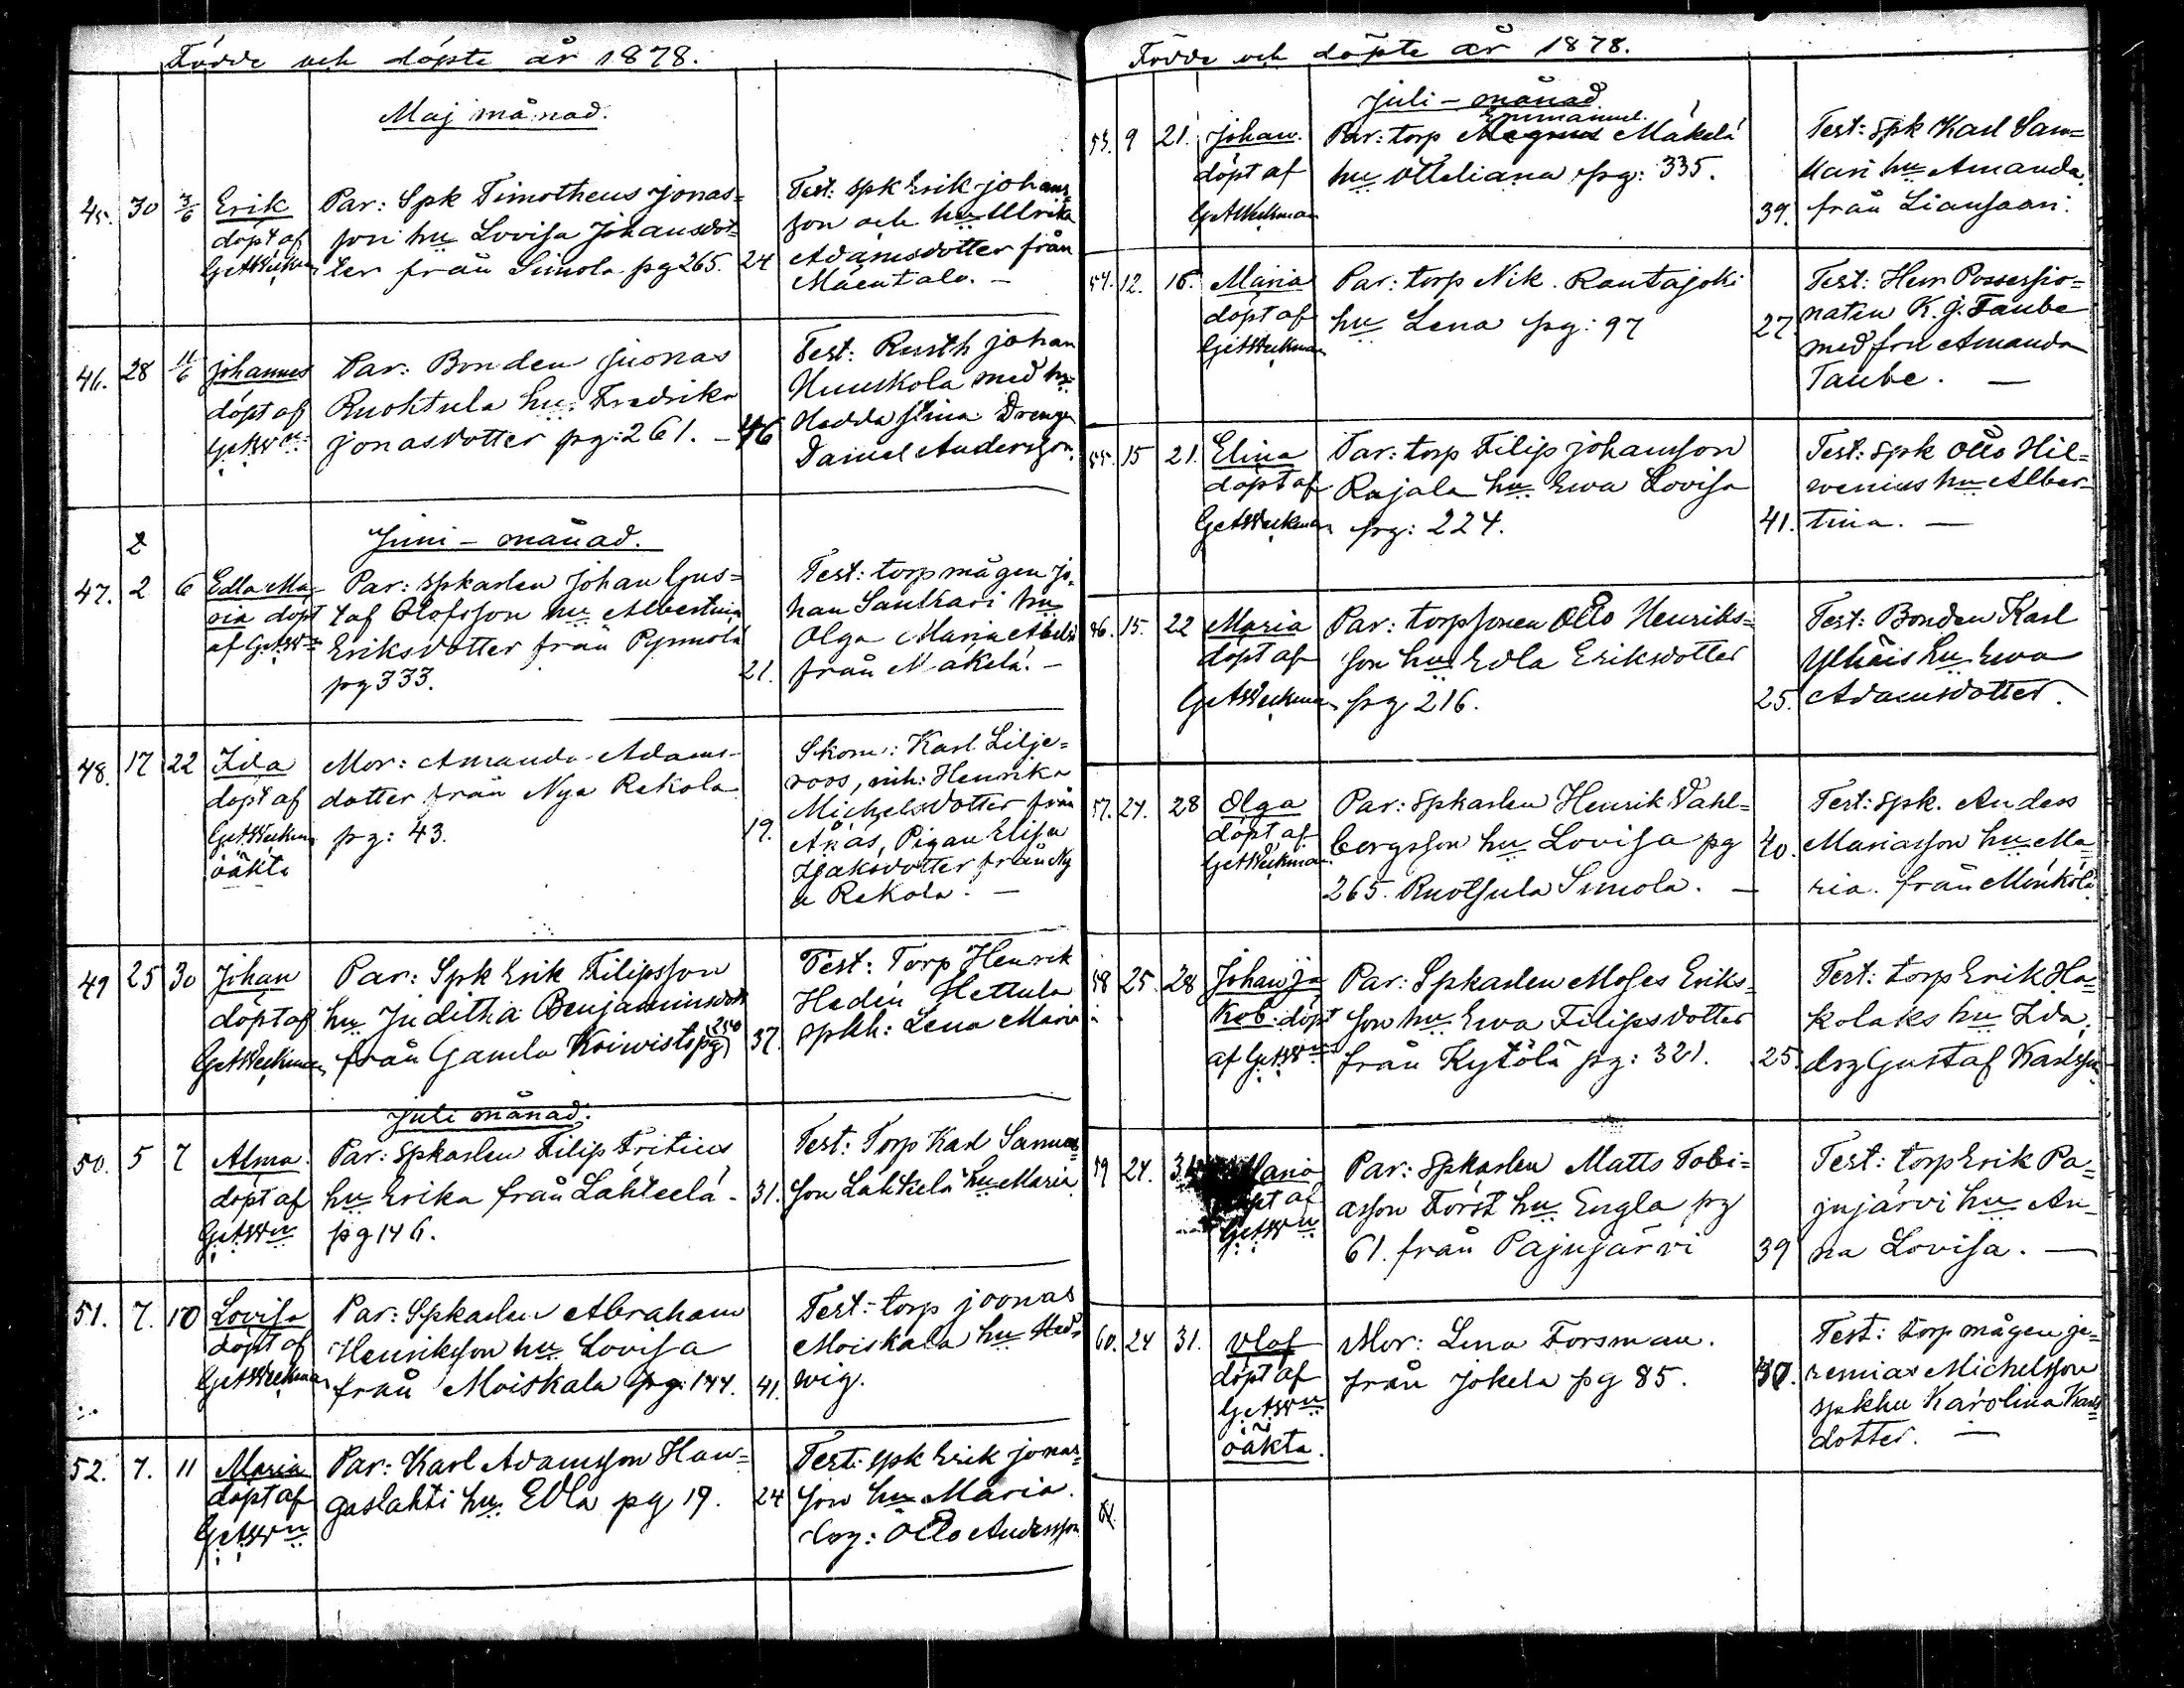 Födde och döpte år 1878.
Maj månad.
45. 30 3/6 Erik Par: Spk Timotheus Jonas= Test: spk Erik Johans=
döpt af son hu Lovisa Johansdot= son och hu Ulrika
GAWeckman ter från Simola pg 265. 24 Adamsdotter från
Mäentalo. –
46. 28 11/6 Johannes Par: Bonden Juonas Test: Rusth Johan
döpt af Ruohtula hu: Fredrika Huuskola med hu
GAWn Jonasdotter pg: 261. – 46 Hedda Stina Drengen
Daniel Andersson.
2 Juni – månad.
47. 2 6 Edla Ma= Par: spkarlen Johan Gus= Test: torpmågen Jo=
ria döpt taf Olofsson hu Albertina han Santkari hu
af GAWn Eriksdotter från Pynnolä Olga Maria
pg 333. 21. från Mäkelä. –
48. 17 22 Ida Mor: Amanda Adams= Skom: Karl Lilje=
döpt af dotter från Nya Rekola roos, inh: Henrika
GAWeckman pg: 43. 19. Michelsdotter från
oäkta Ånäs, Pigan Elisa
Isaksdotter från Ny
a Rekola. –
49 25 30 Johan Par: Spk Erik Filipsson Test: Torp Henrik
döpt af hu Juditha Benjaminsdott Hedén Hettula
GAWeckman från Gamla Koivisto pg 250 37. spkh: Lena Maria
Juli månad.
50. 5 7 Alma Par: spkarlen Filip Fritius Test: Torp Karl Samuels=
döpt af hu Erika från Lähteelä – 31. son Lähteelä hu Maria
GAWn pg 146.
51. 7. 10 Lovisa Par: Spkarlen Abraham Test: torp Joonas
döpt af Henriksson hu Lovisa Moiskala hu Hed=
GAWeckman från Moiskala pg: 144. 41. wig.
52. 7. 11 Maria Par: Karl Adamsson Haw= Test: spk Erik Jonas=
döpt af gaslahti hu Edla pg 19. 24 son hu Maria.
GAWn drg: Otto Andersson
Födde och döpte år 1878.
Juli – månad.
Emmanuel.
53. 9 21. Johan Par: torp Magnus Mäkelä Test: spk Karl San=
döpt af hu Otteliana pg: 335. kari hu Amanda
GAWeckman 39. från Liansaari.
54. 12. 16. Maria Par: torp Nik. Rautajoki Test: Herr Possessio=
döpt af hu Lena pg: 97 27. naten K. G. Taube
GAWeckman med fru Amanda
Taube. –
55. 15 21. Elina Par: torp Filip Johansson Test: spk Otto Hil=
döpt af Rajala hu Ewa Lovisa wenius hu Alber=
GAWeckman pg: 224. 41. tina. –
56. 15. 22 Maria Par: torpsonen Otto Henriks= Test: Bonden Karl
döpt af son hu Edla Eriksdotter Ylhäis hu Ewa
GAWeckman pg 216. 25. Adamsdotter.
57. 24. 28 Olga Par: spkarlen Henrik Dahl= Test: spk. Anders
döpt af bergsson hu Lovisa pg 40. Mariasson hu Ma=
GAWeckman 265. Ruotsula Simola. – ria. från Mönkölä
58 25. 28 Johan Ja Par: Spkarlen Moses Eriks= Test: torp Erik Ha=
kob döpt son hu Ewa Filipsdotter kolaks hu Ida,
af GAWn från Kytölä pg: 321. 25. drg Gustaf Karlsson
59 24. 31 Maria Par: Spkarlen Matts Tobi= Test: torp Erik Pa=
döpt af asson Först hu Engla pg jujärvi hu An=
GAWn 61. från Pajujärvi 39 na Lovisa. –
60. 24 31. Olof Mor: Lena Forsman. Test: torpmågen Je=
döpt af från Jokela pg 85. 30. remias Michelsson
GAWn spkhu Karolina Karls
oäkta. dotter. –
61.